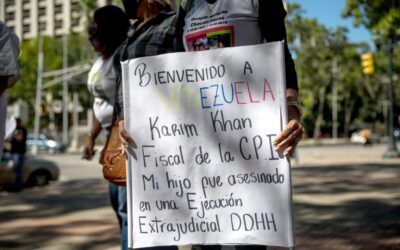 BIENVENIDO A
VENEZUELA
Karim Khan
Fiscal de la C.P.I.
Mi hijo fue asesinado
en una Ejecución
Extrajudicial DDHH